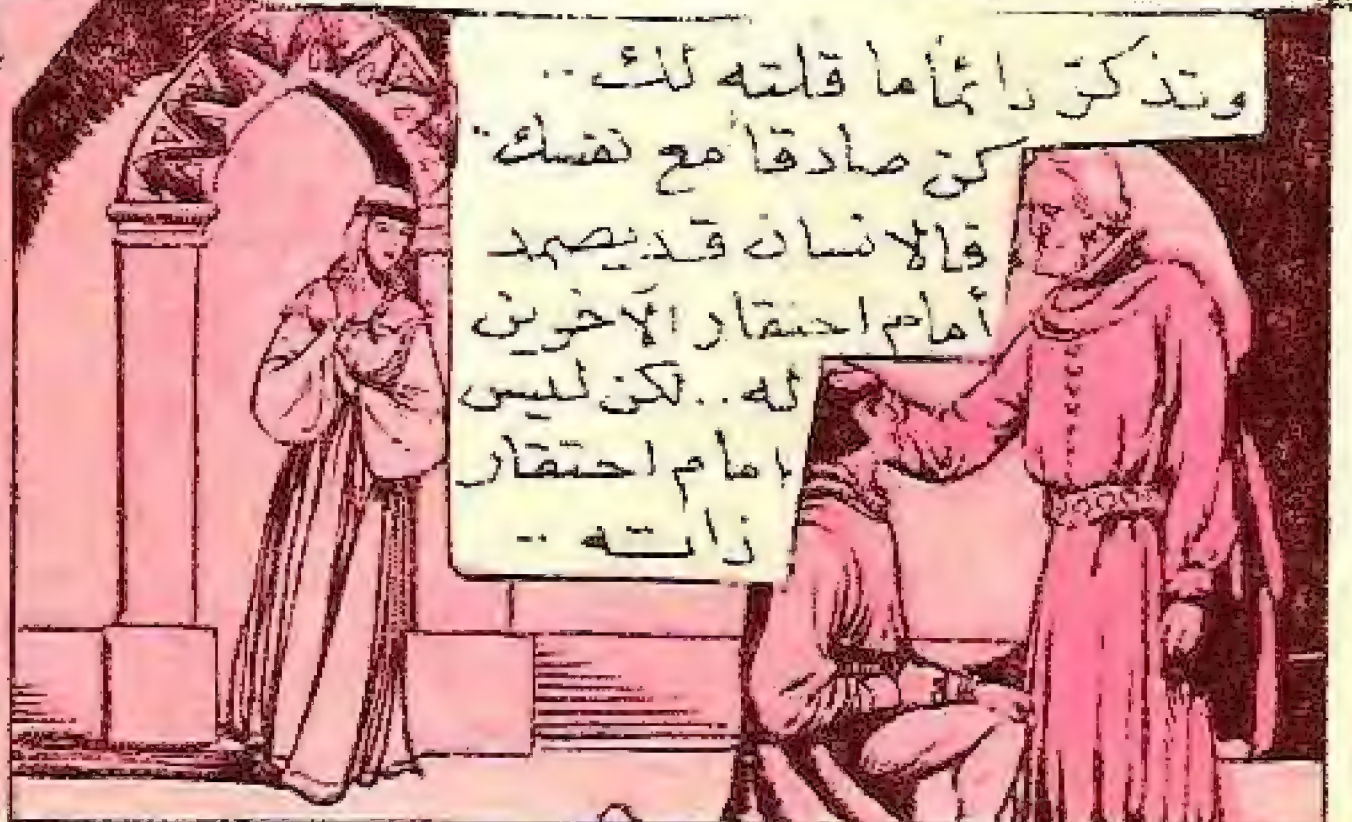 وتذكرّ دائماً ما قلته لك..
كن صادقاً مع نفسك..
فالانسان قد يصمد
أمام احتقار الآخرين
له..لكن ليس
امام احتقار
ذاته..